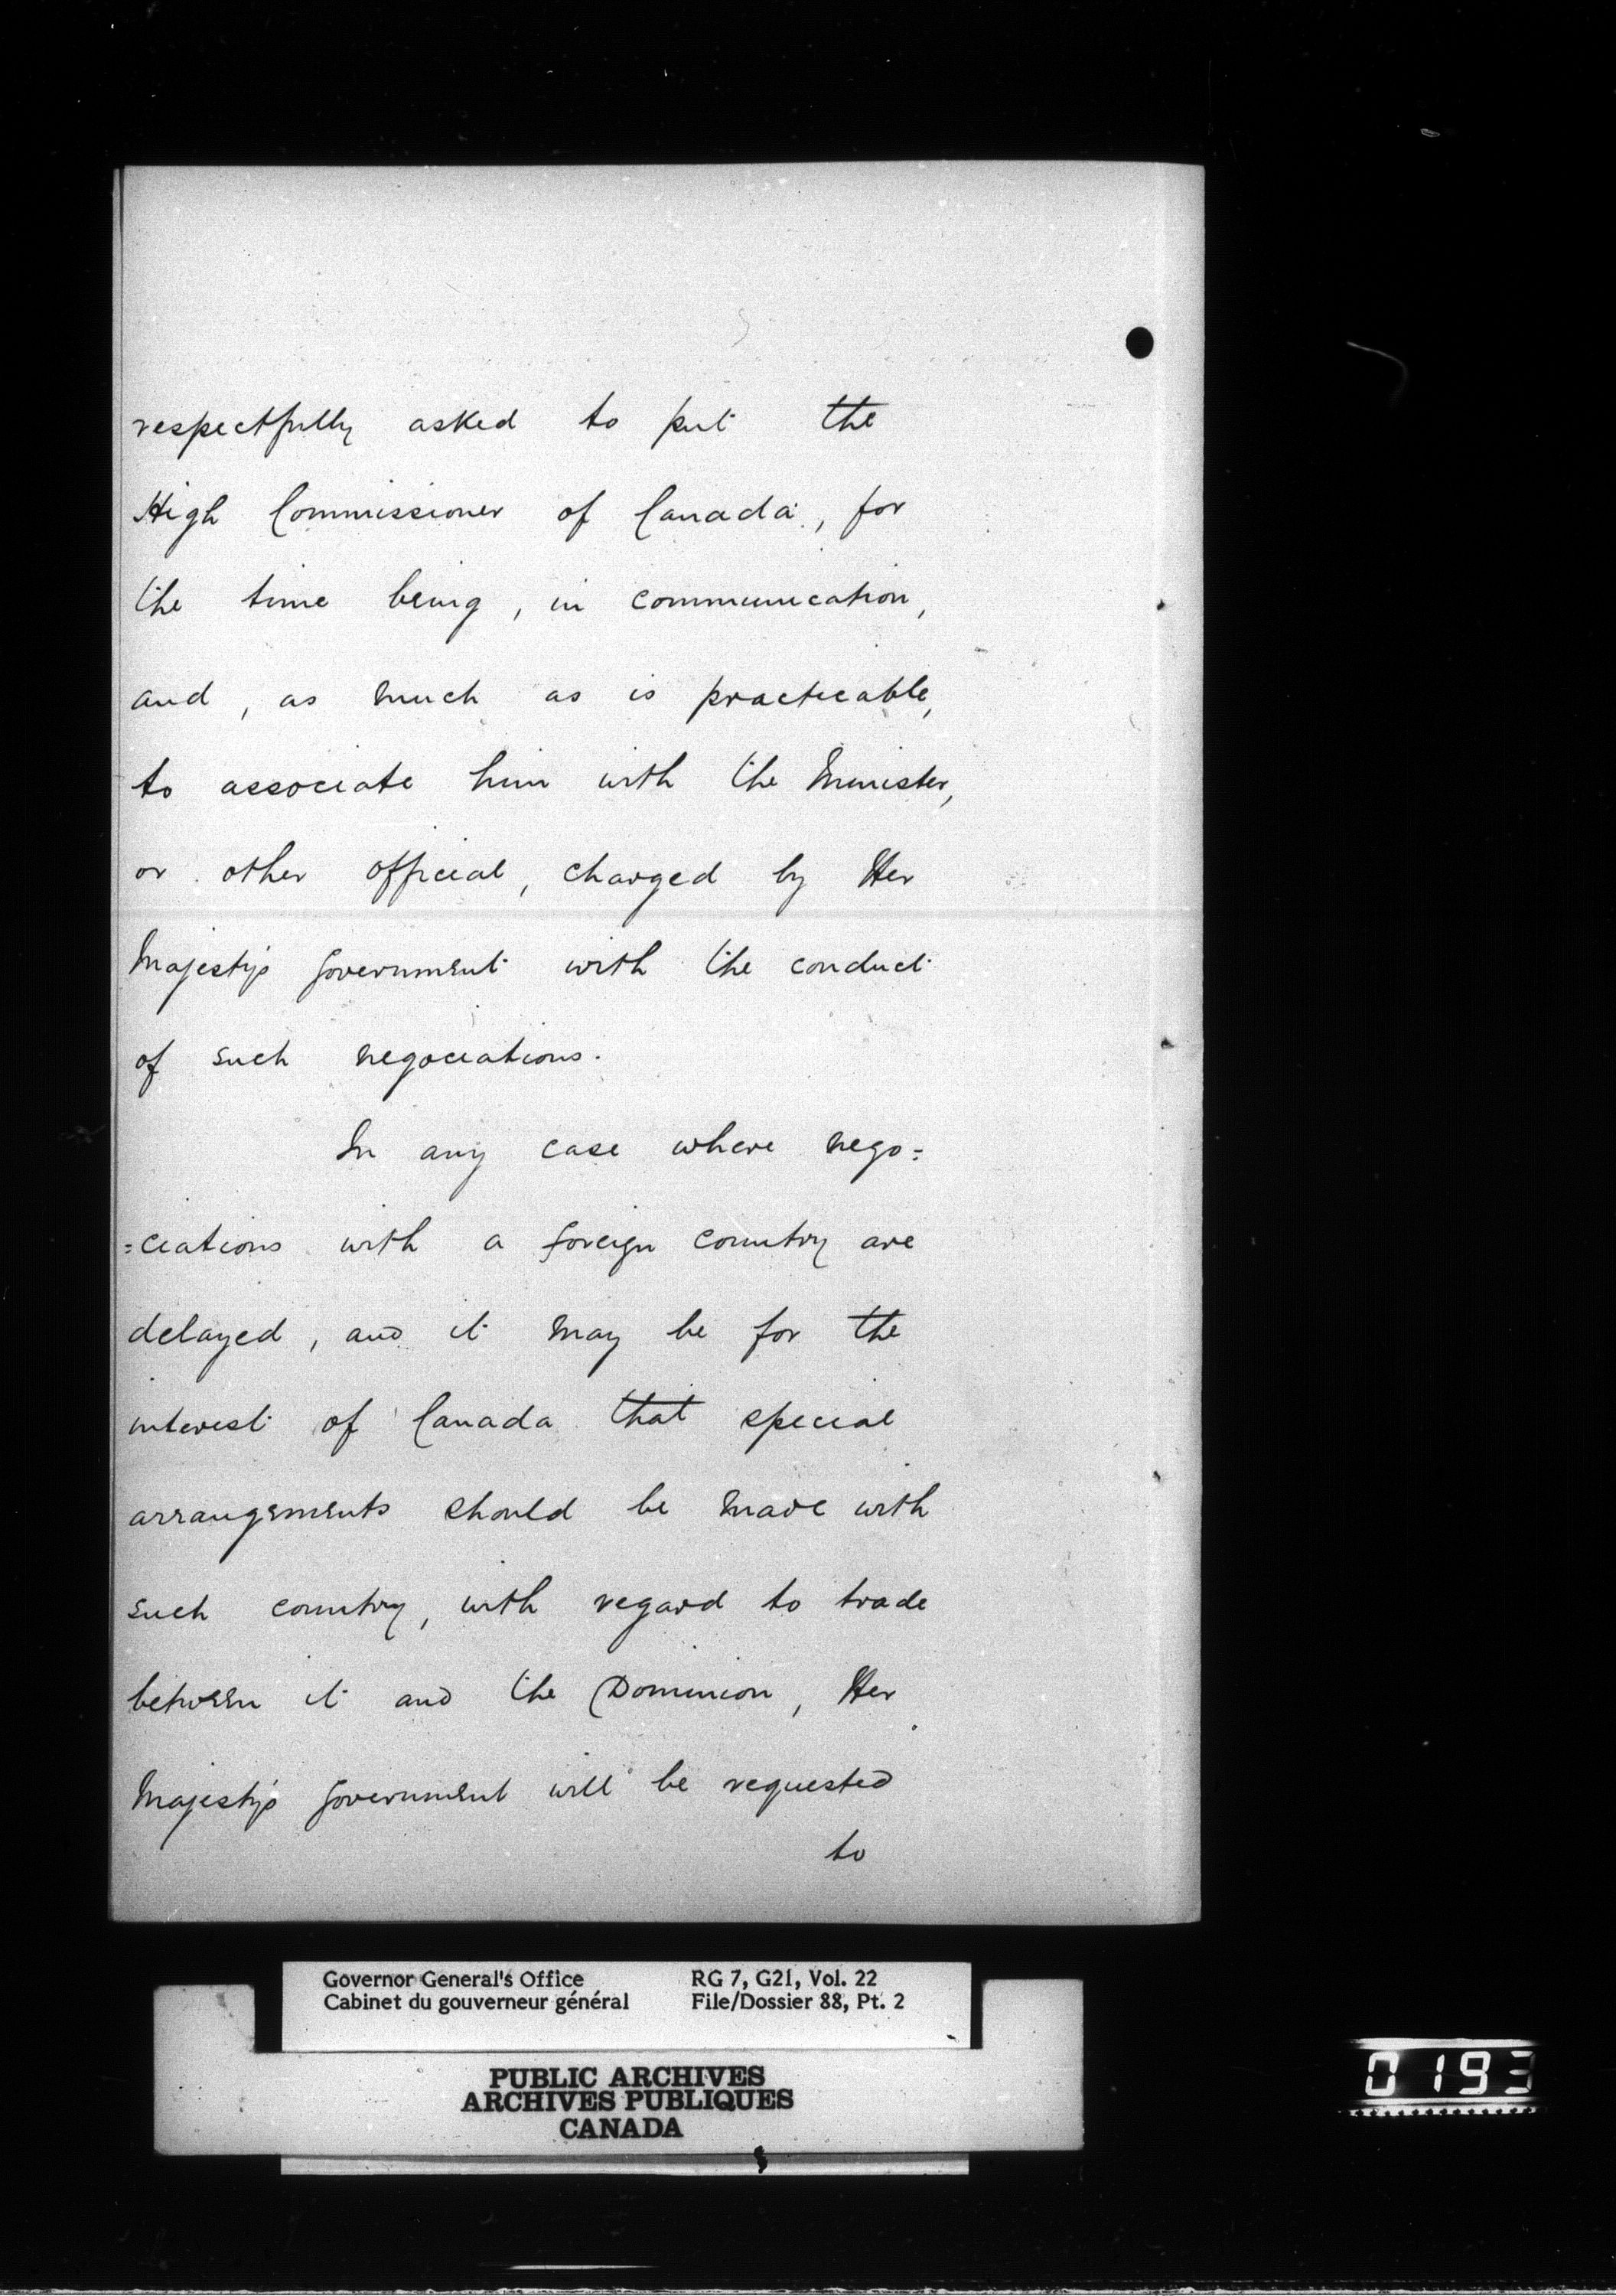 respectfully asked to put the
High Commissioner of Canada, for
the time being, in communication,
and, as much as is practicable,
to associate him with the Minister,
or other official, charged by Her
Majesty's Government with the conduct
of such negociations.
In any case where nego=
=ciations with a foreign country are
delayed, and it may be for the
interest of Canada that special
arrangements should be made with
such country, with regard to trade
between it and the Dominion, Her
Majesty's Government will be requested
to
Governor General's Office RG 7, G21, Vol. 22
Cabinet du gouverneur général File/Dossier 88, Pt. 2
PUBLIC ARCHIVES
ARCHIVES PUBLIQUES
CANADA
0193